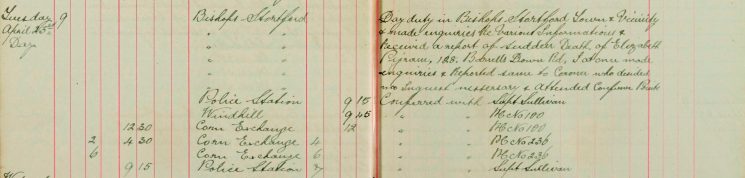 Tuesday 9 Bishops Stortford Day duty in Bishops Stortford Town & Vicinity
April 23rd " & made enquiries re Various Informations &
Day " Received a report of Sudden Death of Elizabeth
" Pigram, 128. Barretts Down Rd, I at once made
" enquiries & Reported same to Coroner who decided
" no Inquest necessary & Attended Conference Point
Police Station 9 15 Conferred with Supt Sullivan
Windhill 9 45 " PC No 100
12 30 Corn Exchange 12 " PC No 100
2 4 30 Corn Exchange 4 " PC No 236
6 Corn Exchange 6 " PC No 236
9 15 Police Station 7 " Supt Sullivan